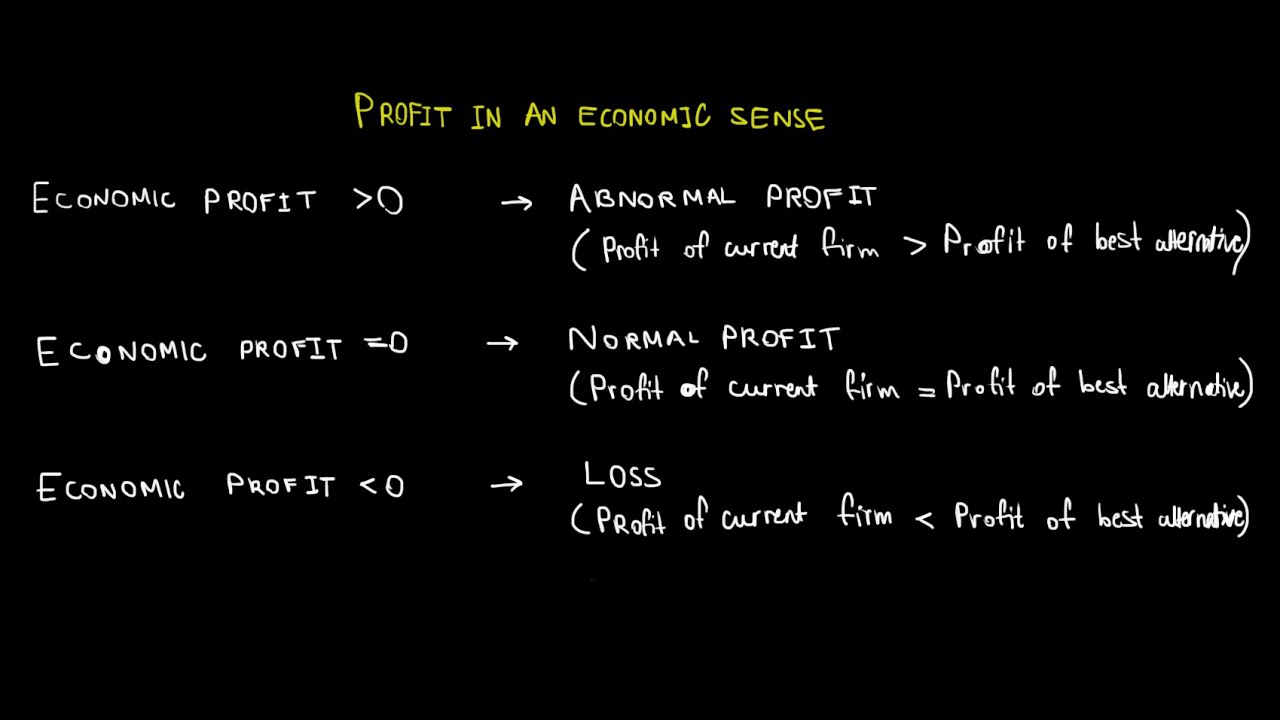 PROFIT IN AN ECONOMIC SENSE
ECONOMIC PROFIT >0 → ABNORMAL PROFIT
(Profit of current firm > Profit of best alternative)
ECONOMIC PROFIT =0 → NORMAL PROFIT
(Profit of current firm = Profit of best alternative)
ECONOMIC PROFIT <0 → LOSS
(PRofit of current firm < Profit of best alternative)